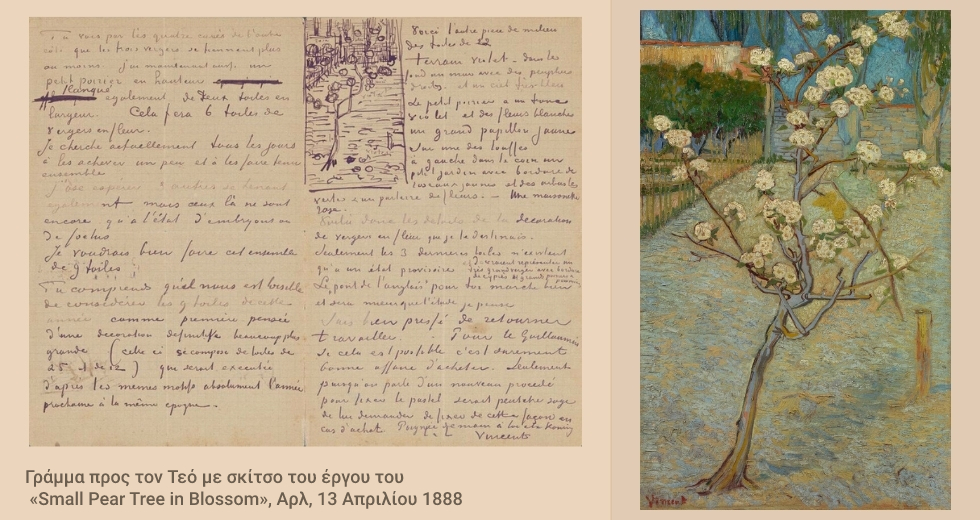 Tu vois par les quatre cotés de l'autre
côté que les trois vergers se tiennent plus
ou moins. J'ai maintenant aussi un
petit poirier en hauteur
également de deux toiles en
largeur. Cela fera 6 toiles de
vergers en fleur.
Je cherche actuellement tous les jours
à les achever un peu et à les faire tenir
ensemble.
J'ose espérer 3 autres se tenant
également mais ceux là ne sont
encore qu'à l'état d'embryons ou
de foetus
Je voudrais bien faire cet ensemble
de 9 toiles.
Tu comprends qu'il nous est loisible
de considérer les 9 toiles de cette
année comme première pensée
d'une décoration définitive beaucoup plus
grande (celle ci se compose de toiles de
25 et de 12) qui serait executée
d'après les mêmes motifs absolument l'année
prochaine à la même epoque.
Voici l'autre pièce de milieu
des toiles de 12
terrain violet. dans le
fond un mur avec des peupliers
droits et un ciel très bleu
Le petit poirier a un tronc
violet et des fleurs blanches
un grand papillon jaune
sur une des touffes
à gauche dans le coin un
petit jardin avec bordure de
roseaux jaunes et des arbustes
verts et un parterre de fleurs. – Une maisonnette
rose.
Voilà donc les détails de la décoration
de vergers en fleur que je te destinais.
Seulement les 3 dernières toiles n'existent
qu'à un état provisoire
Le pont de l'anglois pour toi marche bien
et sera mieux que l'étude je pense
Suis bien pressé de retourner
travailler. Pour le Guillaumin
si cela est possible c'est surement
bonne affaire d'acheter. Seulement
puisqu'on parle d'un nouveau procédé
pour fixer le pastel serait peutêtre sage
de lui demander de fixer de cette façon en
cas d'achat. Poignée de main à toi et à Koning
Vincent
Γράμμα προς τον Τεό με σκίτσο του έργου του
«Small Pear Tree in Blossom», Αρλ, 13 Απριλίου 1888
Vincent